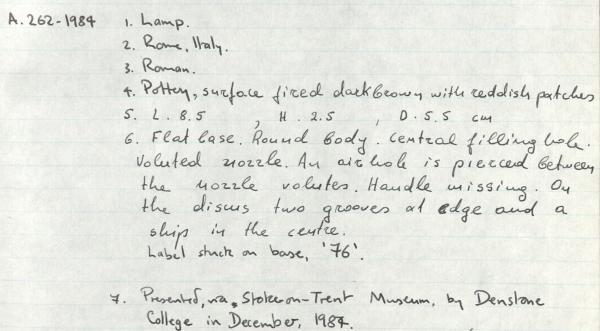 A.262-1984 1. Lamp.
2. Rome, Italy.
3. Roman.
4. Pottery, surface fired dark brown with reddish patches
5. L. 8.5 , H. 2.5 , D. 5.5 cm
6. Flat base. Round body. Central filling hole.
Voluted nozzle. An air hole is pierced between
the nozzle volutes. Handle missing. On
the discus two grooves at edge and a
ship in the centre.
Label stuck on base, '76'.
7. Presented, via Stoke-on-Trent Museum, by Denstone
College in December, 1984.